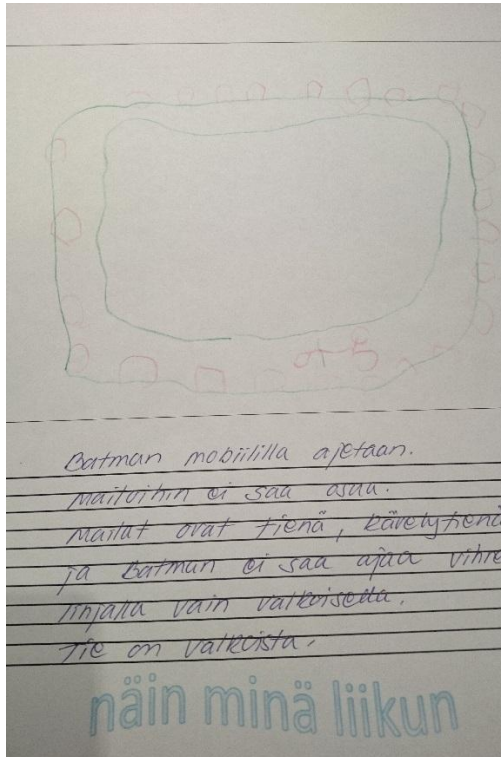 Batman mobiililla ajetaan.
Mailoihin ei saa osua.
Mailat ovat tienä, kävelytienä
ja Batman ei saa ajaa vihre
linjalla vain valkoisella.
Tie on valkoista.
näin minä liikun